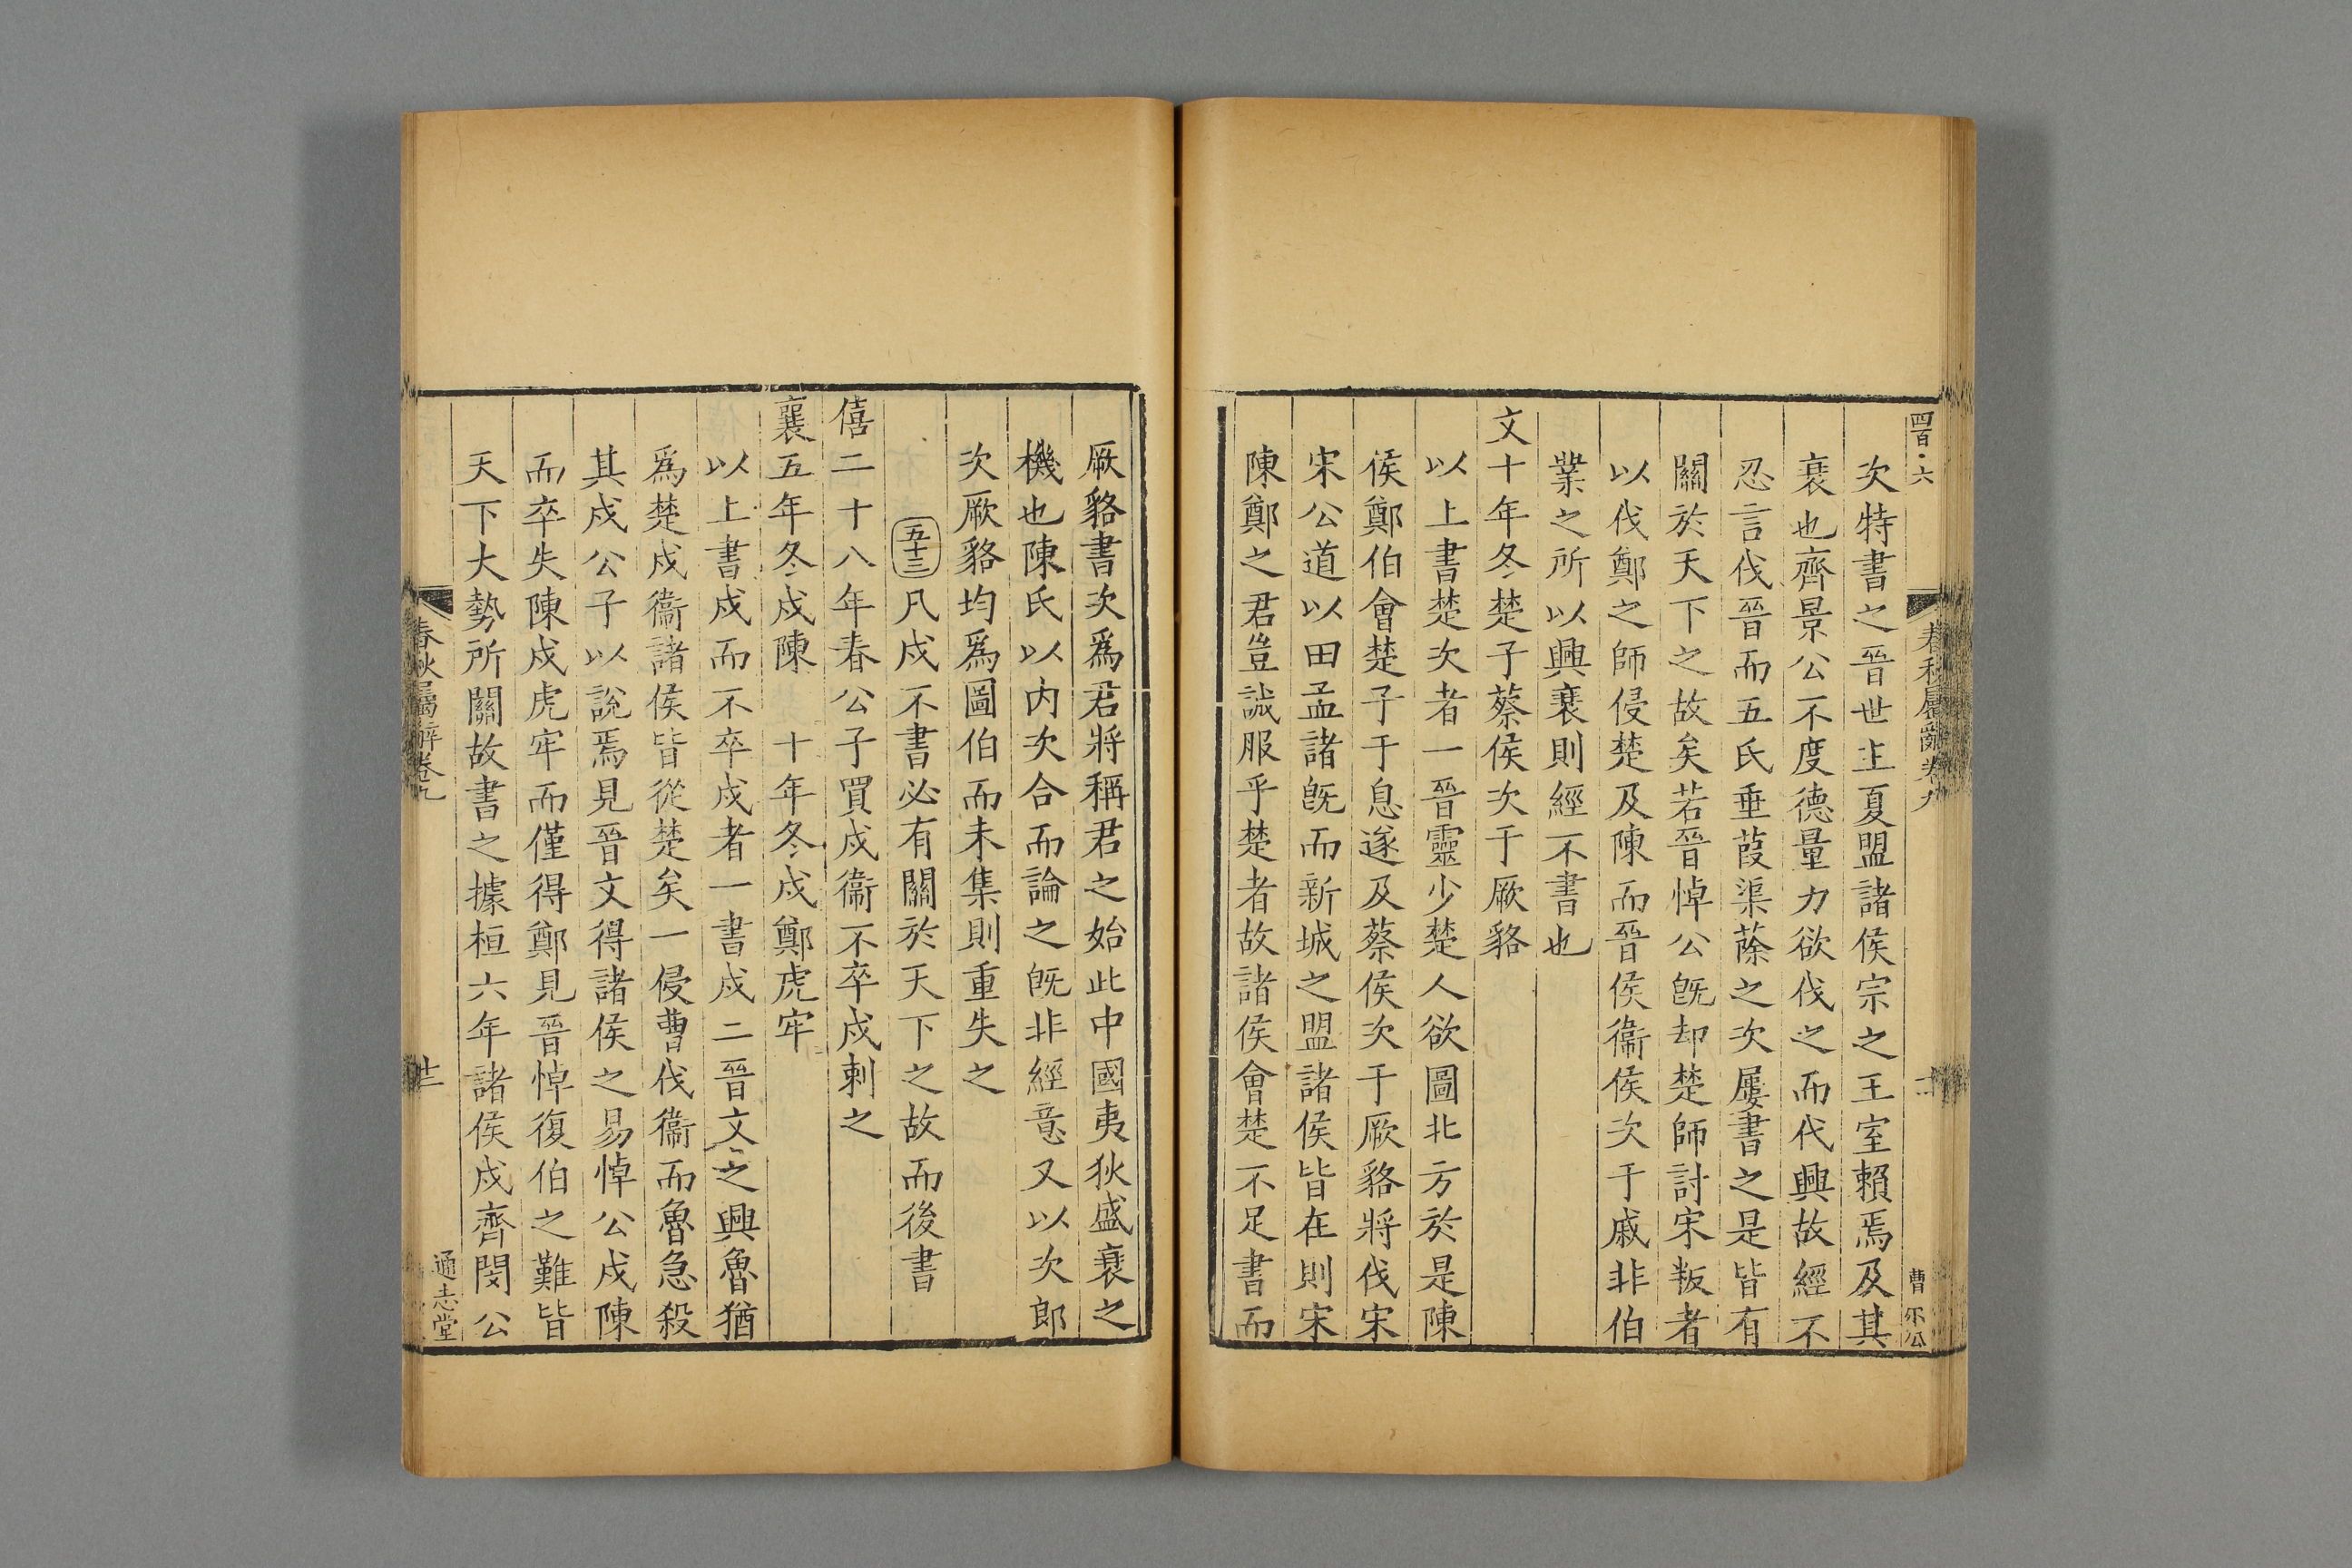 四百·六
春秋屬辭卷九
曹尔公
次特書之晉世主夏盟諸侯宗之王室賴焉及其
衰也齊景公不度德量力欲伐之而代興故經不
忍言伐晉而五氏垂葭渠蒢之次屢書之是皆有
關於天下之故矣若晉悼公旣却楚師討宋叛者
以伐鄭之師侵楚及陳而晉侯衞侯次于戚非伯
業之所以興衰則經不書也
文十年冬楚子蔡侯次于厥貉
以上書楚次者一晉靈少楚人欲圖北方於是陳
侯鄭伯會楚子于息遂及蔡侯次于厥貉將伐宋
宋公道以田孟諸旣而新城之盟諸侯皆在則宋
陳鄭之君豈誠服乎楚者故諸侯會楚不足書而
厥貉書次爲君將稱君之始此中國夷狄盛衰之
機也陳氏以内次合而論之旣非經意又以次郎
次厥貉均爲圖伯而未集則重失之
五十三 凡戍不書必有關於天下之故而後書
僖二十八年春公子買戍衞不卒戍刺之
襄五年冬戍陳 十年冬戍鄭虎牢
以上書戍而不卒戍者一書戍二晉文之興魯猶
爲楚戍衞諸侯皆從楚矣一侵曹伐衞而魯急殺
其戍公子以說焉見晉文得諸侯之易悼公戍陳
而卒失陳戍虎牢而僅得鄭見晉悼復伯之難皆
天下大勢所關故書之據桓六年諸侯戍齊閔公
春秋屬辭卷九
通志堂